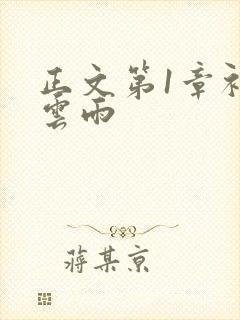 正文第1章初
雲雨
蔣某京